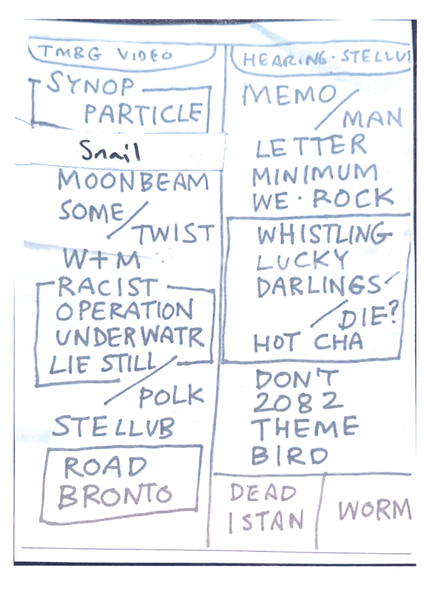 TMBG VIDEO
SYNOP
PARTICLE
Snail
MOONBEAM
SOME/
TWIST
W+M
RACIST
OPERATION
UNDERWATR
LIE STILL
/POLK
STELLUB
ROAD
BRONTO
HEARING · STELLU
MEMO/
MAN
LETTER
MINIMUM
WE · ROCK
WHISTLING
LUCKY
DARLINGS
/DIE?
HOT CHA
DON'T
2082
THEME
BIRD
DEAD
ISTAN
WORM